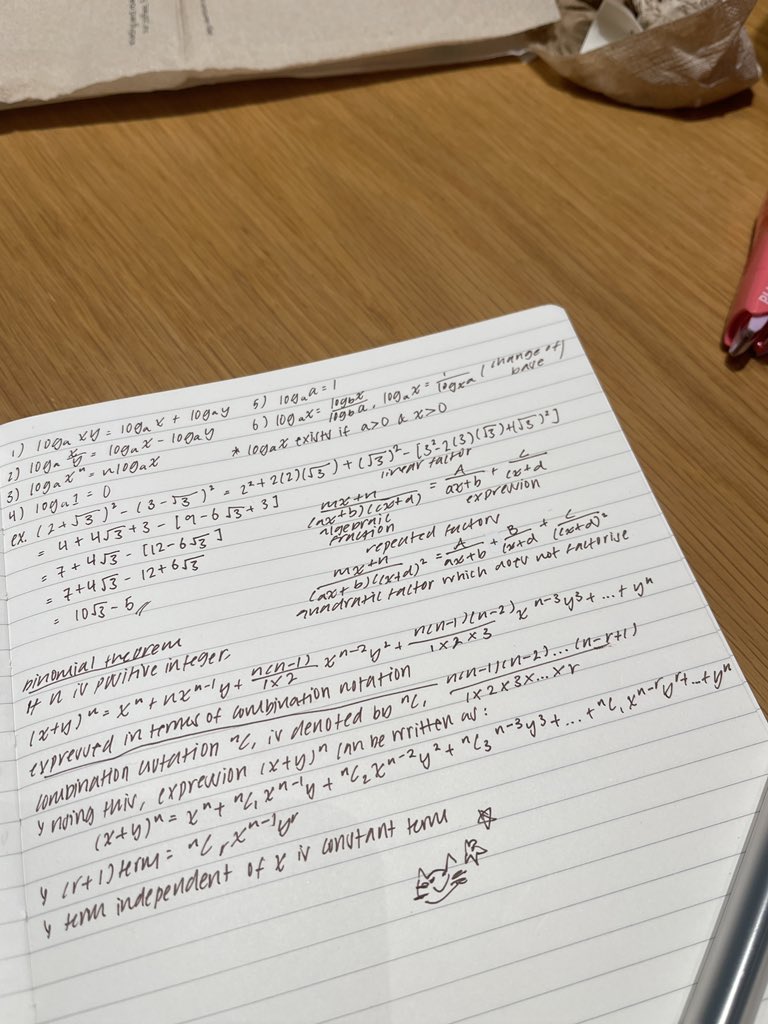 1) logₐ xy = logₐ x + logₐ y
2) logₐ x/y = logₐ x - logₐ y
3) logₐ xⁿ = n logₐ x
4) logₐ 1 = 0
5) logₐ a = 1
6) logₐ x = log_b x / log_b a , logₐ x = 1 / logₓ a (change of base)
* logₐ x exists if a>0 & x>0
ex. (2+√3)² - (3-√3)² = 2² + 2(2)(√3) + (√3)² - [3² - 2(3)(√3) + (√3)²]
= 4 + 4√3 + 3 - [9 - 6√3 + 3]
= 7 + 4√3 - [12 - 6√3]
= 7 + 4√3 - 12 + 6√3
= 10√3 - 5
linear factor
(mx+n) / (ax+b)(cx+d) = A/(ax+b) + C/(cx+d)
algebraic fraction expression
repeated factors
(mx+n) / (ax+b)(cx+d)² = A/(ax+b) + B/(cx+d) + C/(cx+d)²
quadratic factor which does not factorise
binomial theorem
if n is positive integer,
(x+y)ⁿ = xⁿ + nxⁿ⁻¹y + n(n-1)/1×2 xⁿ⁻²y² + n(n-1)(n-2)/1×2×3 xⁿ⁻³y³ + ... + yⁿ
expressed in terms of combination notation
combination notation ⁿCᵣ is denoted by ⁿCᵣ n(n-1)(n-2)...(n-r+1) / 1×2×3×...×r
using this, expression (x+y)ⁿ can be written as:
(x+y)ⁿ = xⁿ + ⁿC₁xⁿ⁻¹y + ⁿC₂xⁿ⁻²y² + ⁿC₃ⁿ⁻³y³ + ... + ⁿCᵣxⁿ⁻ʳyʳ + ... + yⁿ
(r+1) term = ⁿCᵣ xⁿ⁻¹yʳ
term independent of x is constant term